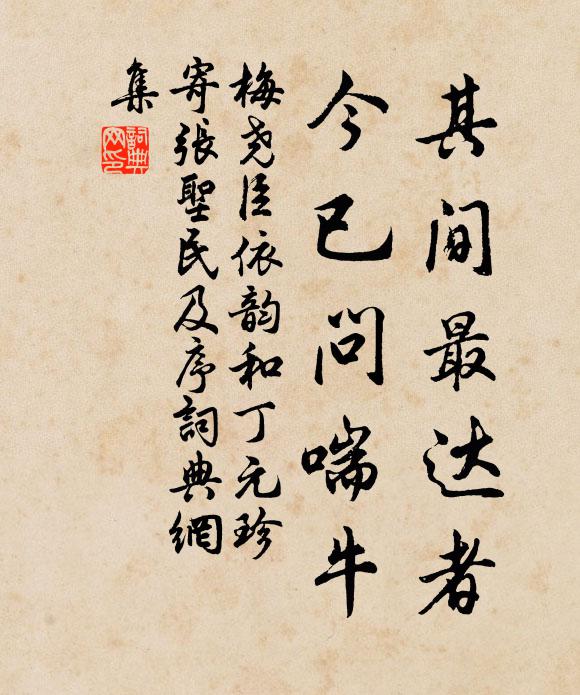 其间最达者
今已问喘牛
梅尧臣依韵和丁元珍
寄張聖民及序詞典網
集
詞典網印